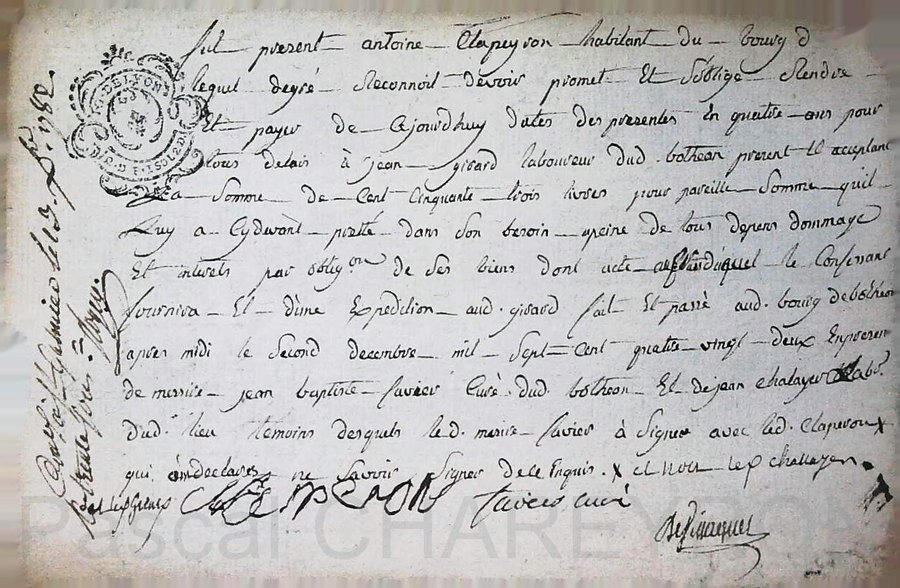 fut present antoine Clapeyron habitant du bourg d
lequel degré Reconnoit devoir promet Et soblige Rendre
Et payer de cejourdhuy dates des presentes En quatre ans pour
tous delais à jean girard laboureur dud. botheon present Et acceptant
La Somme de Cent Cinquante trois livres pour pareille Somme quil
Luy a Cydevant pretté dans Son besoin apeine de tous depens dommage
Et interets par oblig.on de Ses biens dont acte duquel le Confessant
fournira Et dune Expedition aud. girard fait Et passé aud. bourg de botheon
apres midi le Second decembre mil Sept Cent quatre vingt deux Enpresence
de messire jean baptiste favier Curé dud. botheon Et de jean Chalayer lab.r
dud. lieu temoins desquels le d. messire favier à Signé avec led. Claperon x
qui ne Savoir Signer de ce Enquis. x et non le d. challayer.
Clapeyron favier curé
DELYON
1782
Pascal CHAREYRON